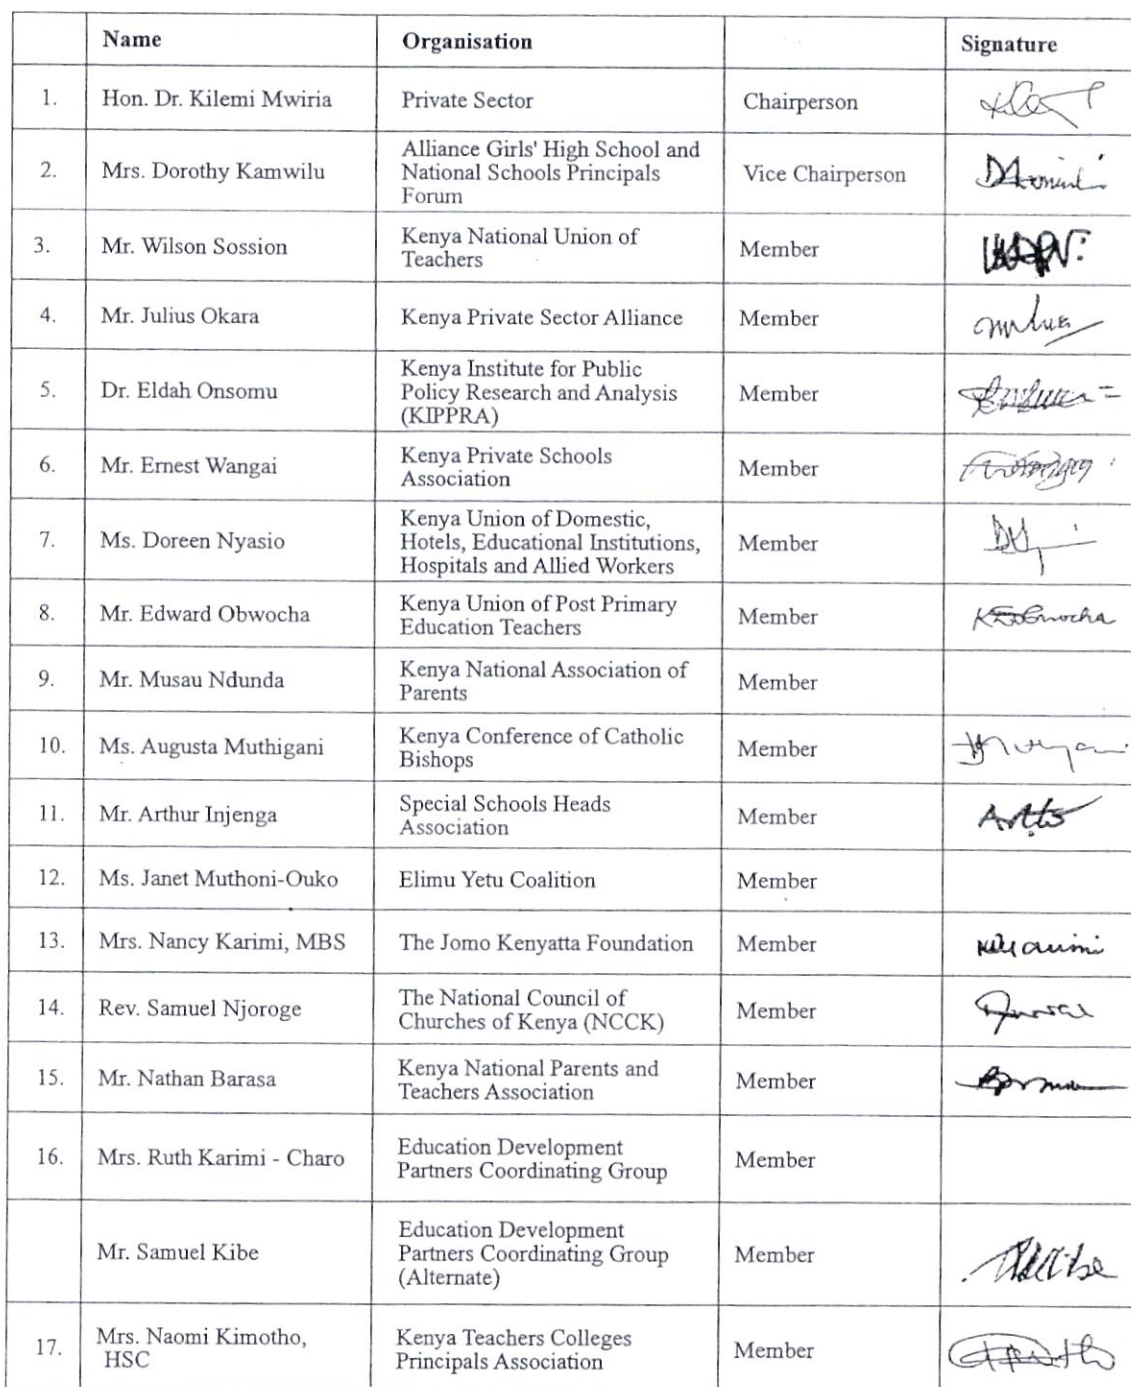 Name Organisation Signature
1. Hon. Dr. Kilemi Mwiria Private Sector Chairperson
2. Mrs. Dorothy Kamwilu Alliance Girls' High School and National Schools Principals Forum Vice Chairperson
3. Mr. Wilson Sossion Kenya National Union of Teachers Member
4. Mr. Julius Okara Kenya Private Sector Alliance Member
5. Dr. Eldah Onsomu Kenya Institute for Public Policy Research and Analysis (KIPPRA) Member
6. Mr. Ernest Wangai Kenya Private Schools Association Member
7. Ms. Doreen Nyasio Kenya Union of Domestic, Hotels, Educational Institutions, Hospitals and Allied Workers Member
8. Mr. Edward Obwocha Kenya Union of Post Primary Education Teachers Member
9. Mr. Musau Ndunda Kenya National Association of Parents Member
10. Ms. Augusta Muthigani Kenya Conference of Catholic Bishops Member
11. Mr. Arthur Injenga Special Schools Heads Association Member
12. Ms. Janet Muthoni-Ouko Elimu Yetu Coalition Member
13. Mrs. Nancy Karimi, MBS The Jomo Kenyatta Foundation Member
14. Rev. Samuel Njoroge The National Council of Churches of Kenya (NCCK) Member
15. Mr. Nathan Barasa Kenya National Parents and Teachers Association Member
16. Mrs. Ruth Karimi - Charo Education Development Partners Coordinating Group Member
Mr. Samuel Kibe Education Development Partners Coordinating Group (Alternate) Member
17. Mrs. Naomi Kimotho, HSC Kenya Teachers Colleges Principals Association Member